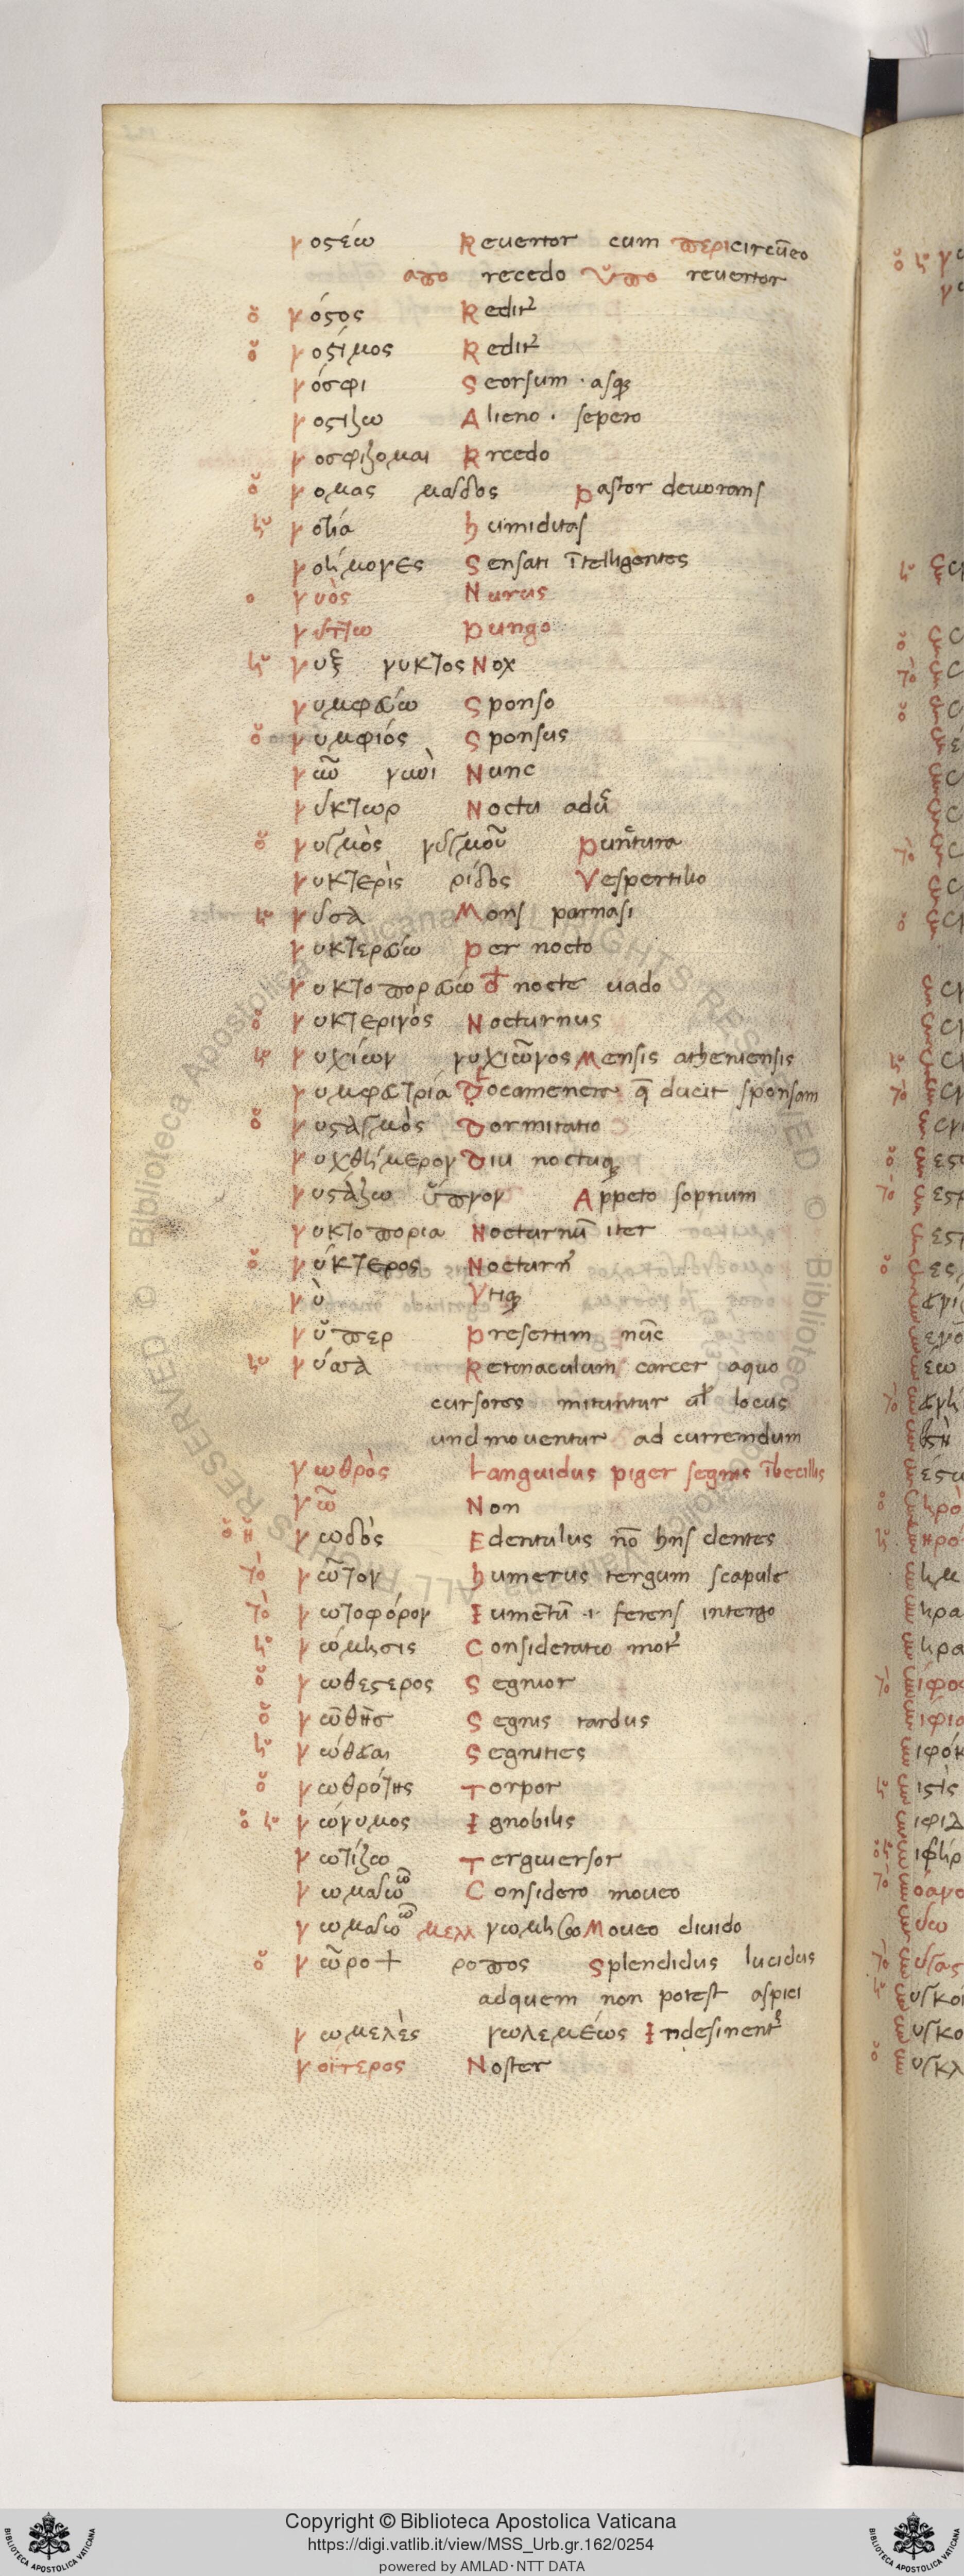 νοστέω Reuertor cum περι circūeo
απο recedo ὑπο reuertor
ὁ νόστος Redit᷒
ὁ νόστιμος Redit᷒
νόσφι Seorsum · asq
νοστίζω Alieno · sepero
νοσφίζομαι Rrcedo
ὁ νομας μαδος Pastor deuorans
ἡ νοτία humiditas
νοήμονες Sensati ītelligentes
ὁ νυὸς Nurus
νύττω Pungo
ἡ νυξ νυκτος Nox
νυμφεύω Sponso
ὁ νυμφιός Sponsus
νῦν νυνὶ Nunc
νύκτωρ Noctu adu
ὁ νυγμὸς νυγμοῦ Punctura
νυκτερὶς ρίδος Vespertilio
ἡ νύσα Mons parnasi
νυκτερεύω Per nocto
νυκτοπορεύω d nocte uado
ὁ νυκτερινός Nocturnus
ἡ νυχίων νυχιῶνος Mensis atheniensis
νυμφετρία Docamenen q̄ ducit sponsam
ὁ νυσταγμὸς Dormitatio
νυχθήμερον Diu noctuq
νυστάζω ὕπνον Appeto sopnum
νυκτοπορια Nocturnū iter
ὁ νύκτερος Nocturn᷒
νὺ Vtiq
νῦπερ Presertim nūc
ἡ νύσσα Retonaculum carcer aquo
cursores mituntur al locus
und mouentur ad currendum
νωθρὸς Languidus piger segnis ībecillis
νῶ Non
ὁ ἡ νωδὸς Edentulus nō hns dentes
τὸ νῶτον humerus tergum scapule
τὸ νωτοφόρον Iumētū · i · ferens intergo
ἡ νώμησις Consideratio mot᷒
ὁ νωθεστερος Segnior
ὁ νωθης Segnis tardus
ἡ νώθεαι Segnities
ὁ νωθρότης Torpor
ὁ ἡ νώνυμος Ignobilis
νωτίζω Tergiuersor
νωμαω ῶ Considero moueo
νωμαω ῶ μελλ νωμήσω Moueo diuido
ὁ νῶροψ ροπος Splendidus lucidus
adquem non potest aspici
νωμελὲς νωλεμέως Indesinent
νοίτερος Noster
Copyright © Biblioteca Apostolica Vaticana
https://digi.vatlib.it/view/MSS_Urb.gr.162/0254
powered by AMLAD·NTT DATA